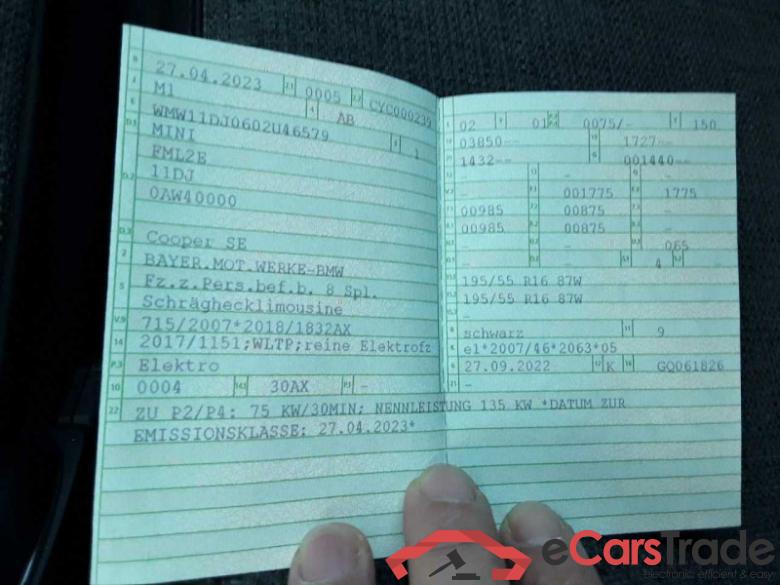 B 27.04.2023 2.1 0005 2.2 CYC000239
J M1 4 AB
E WMW11DJ0602U46579 3 1
D.1 MINI
D.2 FML2E
11DJ
0AW40000
D.3 Cooper SE
2 BAYER.MOT.WERKE-BMW
5 Fz.z.Pers.bef.b. 8 Spl.
Schräghecklimousine
V.9 715/2007*2018/1832AX
14 2017/1151;WLTP;reine Elektrofz
P.3 Elektro
10 0004 14.1 30AX P.1 -
22 ZU P2/P4: 75 KW/30MIN; NENNLEISTUNG 135 KW *DATUM ZUR
EMISSIONSKLASSE: 27.04.2023*
02 01 0075/- T 150
03850-- 1727--
1432-- G 001440--
- - -
- 001775 1775
00985 00875 -
00985 00875 -
- - 065
- - 4 -
195/55 R16 87W
195/55 R16 87W
-
R schwarz 11 9
K e1*2007/46*2063*05
6 27.09.2022 17 K 16 GQ061826
21 -
eCarsTrade
Electronic, efficient & easy